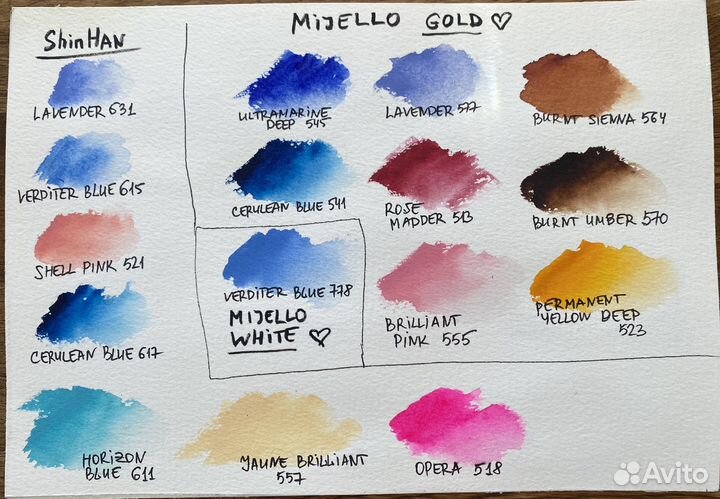 ShinHAN
LAVENDER 631
VERDITER BLUE 615
SHELL PINK 521
CERULEAN BLUE 617
HORIZON
BLUE 611
JAUNE BRILLIANT
557
OPERA 518
MIJELLO GOLD ♡
ULTRAMARINE
DEEP 545
LAVENDER 577
BURNT SIENNA 564
CERULEAN BLUE 541
ROSE
MADDER 513
BURNT UMBER 570
VERDITER BLUE 778
MIJELLO
WHITE ♡
BRILLIANT
PINK 555
PERMANENT
YELLOW DEEP
523
Avito